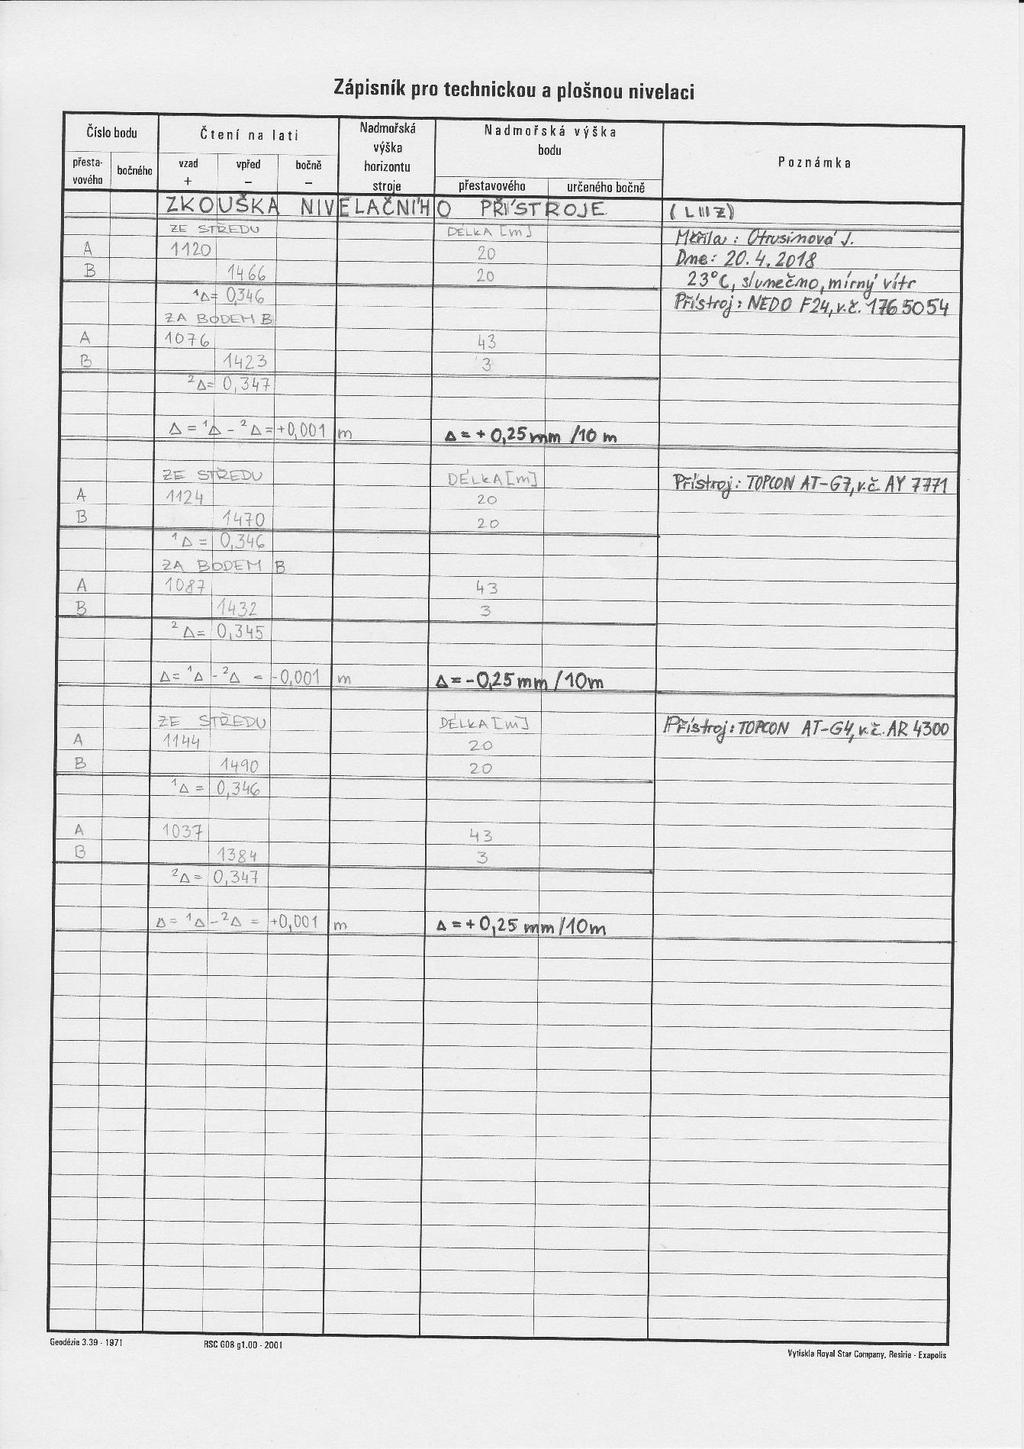 Zápisník pro technickou a plošnou nivelaci
Číslo bodu Čtení na lati Nadmořská výška horizontu stroje Nadmořská výška bodu Poznámka
přesta-vového bočného vzad + vpřed − bočně − přestavového určeného bočně
ZKOUŠKA NIVELAČNÍHO PŘÍSTROJE
ZE STŘEDU DÉLKA [m] Měřila: Otrusinová J.
A 1120 20 Dne: 20.4.2018
B 1466 20 23°C, slunečno, mírný vítr
¹Δ= 0,346 Přístroj: NEDO F24, v.č. 1765054
ZA BODEM B
A 1076 43
B 1423 3
²Δ= 0,347
Δ = ¹Δ - ²Δ = +0,001 m Δ = + 0,25 mm /10 m
ZE STŘEDU DÉLKA [m] Přístroj: TOPCON AT-G7, v.č. AY 7771
A 1124 20
B 1470 20
¹Δ = 0,346
ZA BODEM B
A 1087 43
B 1432 3
²Δ= 0,345
Δ= ¹Δ - ²Δ = -0,001 m Δ = -0,25 mm /10m
ZE STŘEDU DÉLKA [m] Přístroj: TOPCON AT-G4, v.č. AR 4300
A 1144 20
B 1490 20
¹Δ = 0,346
A 1037 43
B 1384 3
²Δ= 0,347
Δ= ¹Δ - ²Δ = +0,001 m Δ = + 0,25 mm /10m
Geodézie 3.39 - 1971 RSC G08 g1.00 - 2001 Vytiskla Royal Star Company, Resirie - Exapolis